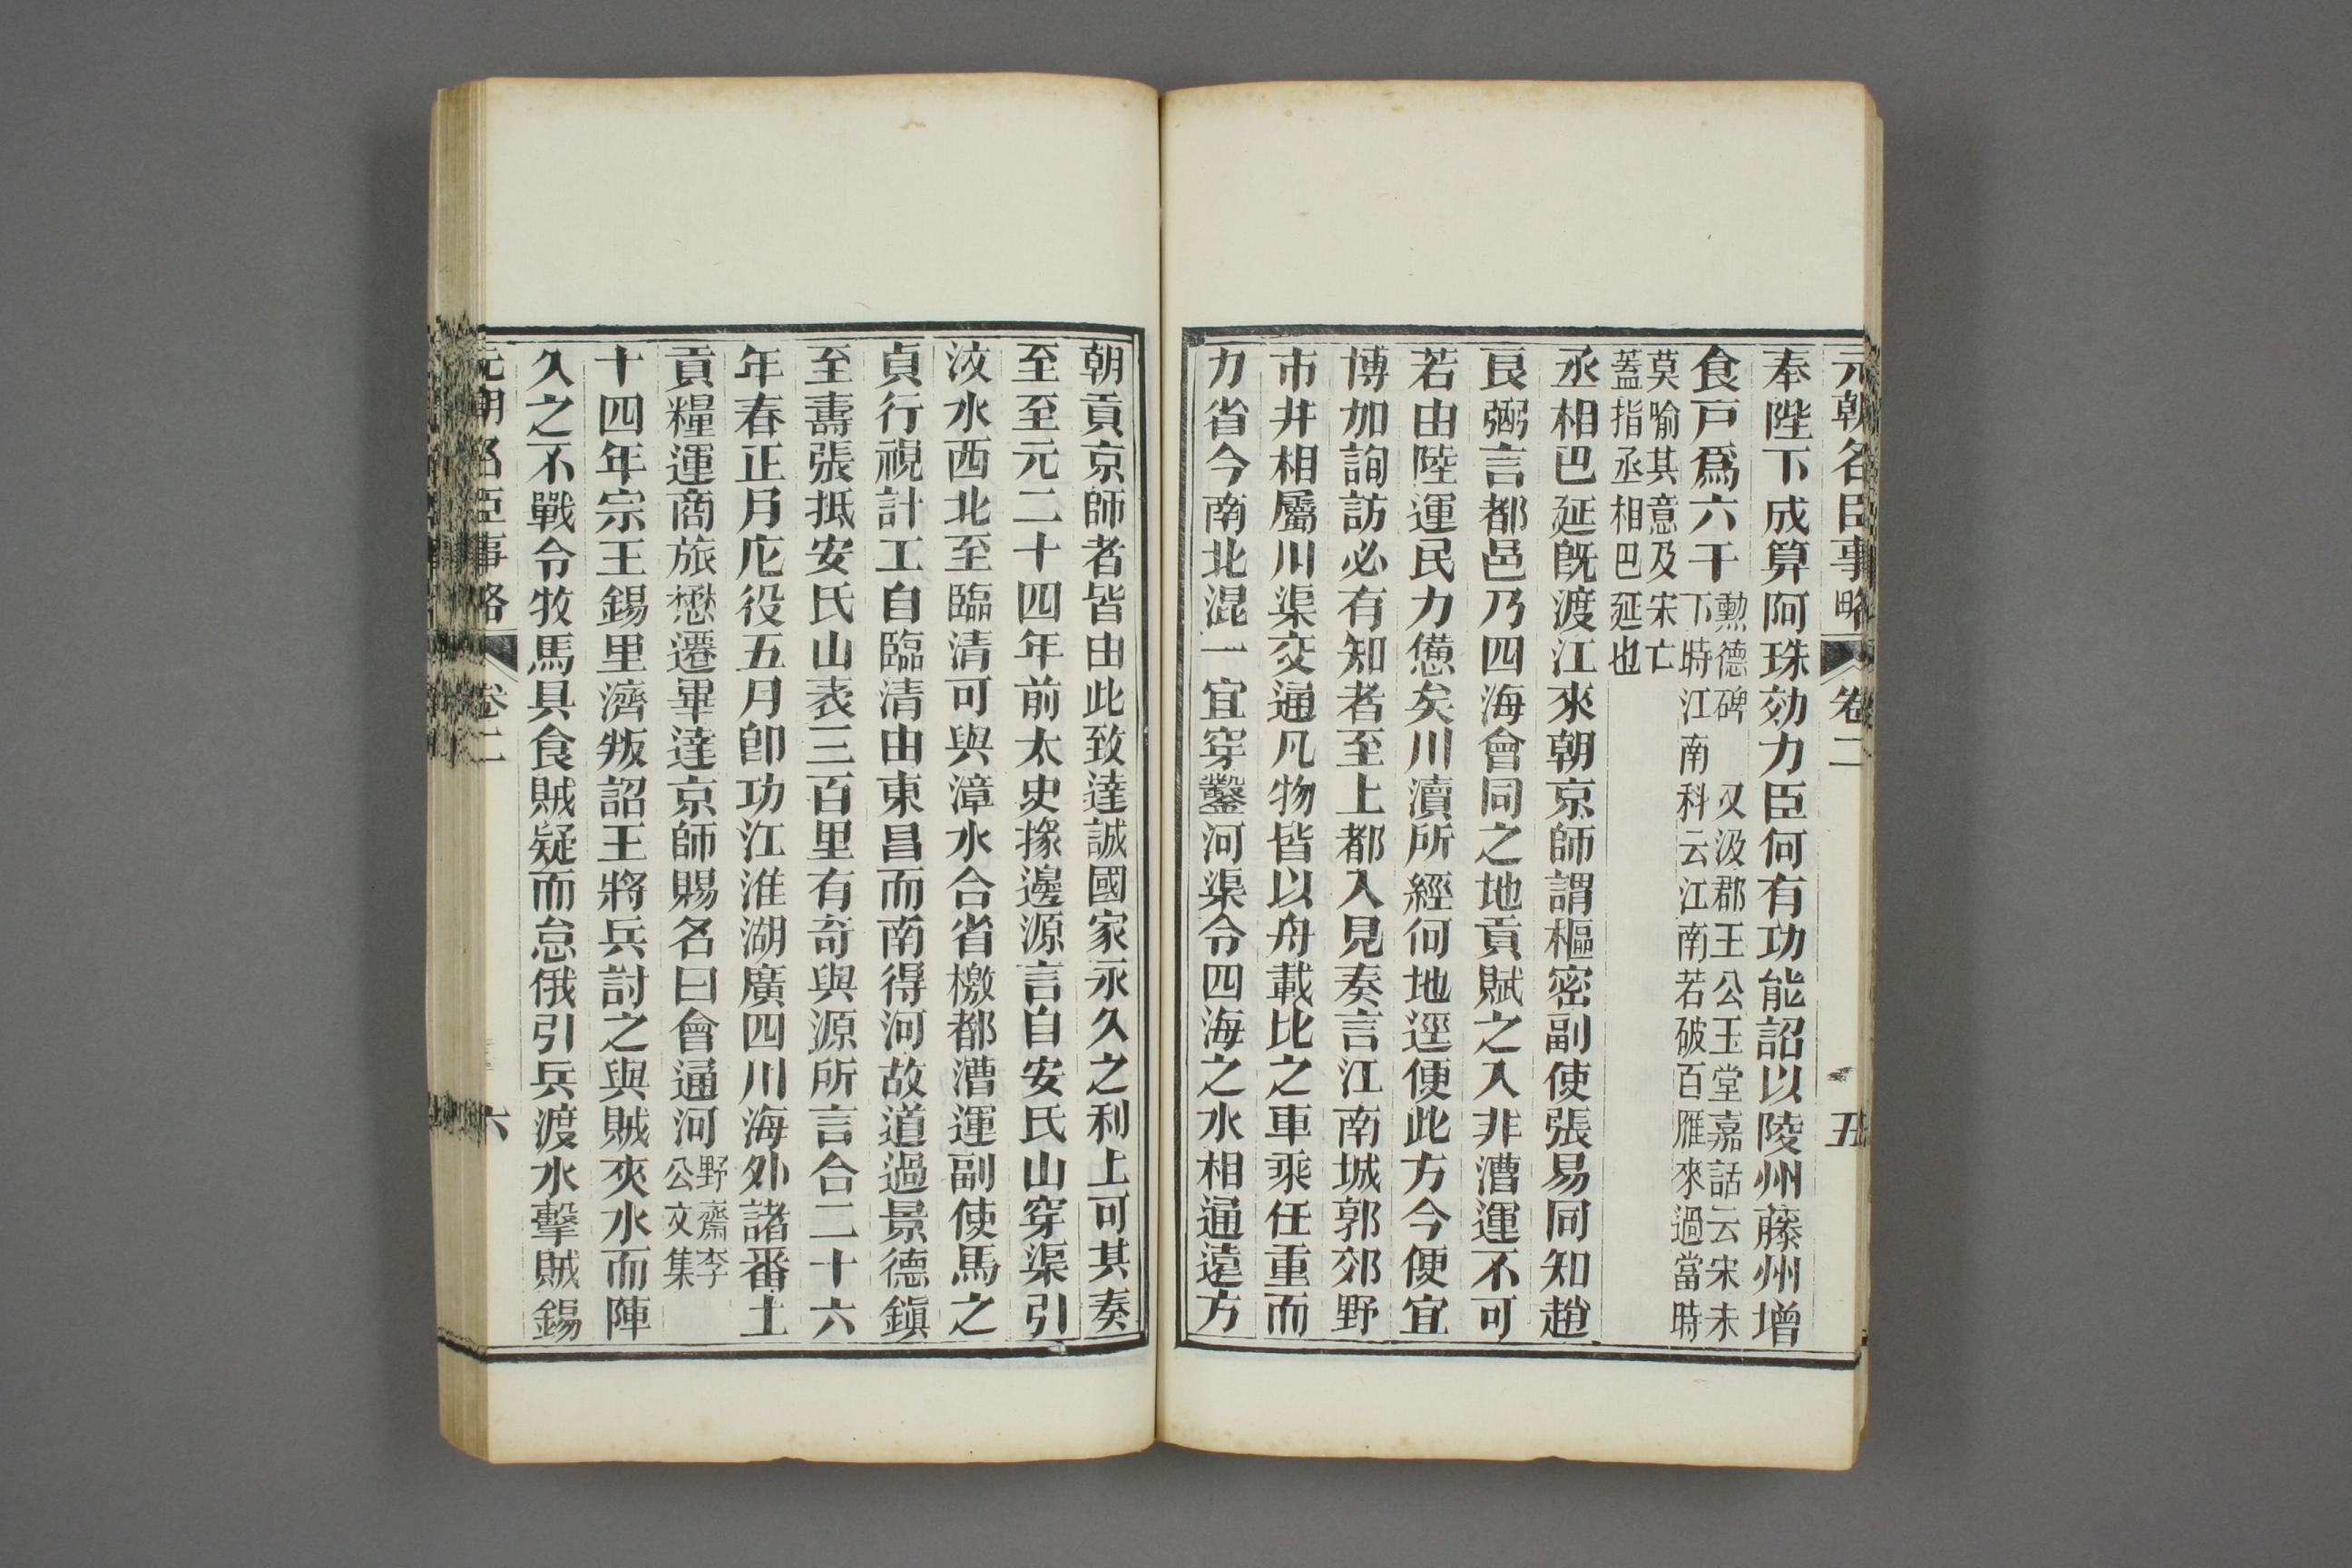 元朝名臣事略 卷二 五
奉陛下成算阿珠効力臣何有功能詔以陵州藤州增
食戶爲六千
勳德碑 又汲郡王公玉堂嘉話云宋未
下時江南科云江南若破百雁來過當時
莫喻其意及宋亡
蓋指丞相巴延也
丞相巴延旣渡江來朝京師謂樞密副使張易同知趙
良弼言都邑乃四海會同之地貢賦之入非漕運不可
若由陸運民力憊矣川瀆所經何地逕便此方今便宜
博加詢訪必有知者至上都入見奏言江南城郭郊野
市井相屬川渠交通凡物皆以舟載比之車乘任重而
力省今南北混一宜穿鑿河渠令四海之水相通遠方
朝貢京師者皆由此致達誠國家永久之利上可其奏
至至元二十四年前太史掾邊源言自安民山穿渠引
汶水西北至臨清可與漳水合省檄都漕運副使馬之
貞行視計工自臨清由東昌而南得河故道過景德鎭
至壽張抵安民山表三百里有奇與源所言合二十六
年春正月庀役五月卽功江淮湖廣四川海外諸番土
貢糧運商旅懋遷畢達京師賜名曰會通河
野齋李
公文集
十四年宗王錫里濟叛詔王將兵討之與賊夾水而陣
久之不戰令牧馬具食賊疑而怠俄引兵渡水擊賊錫
元朝名臣事略 卷二 六